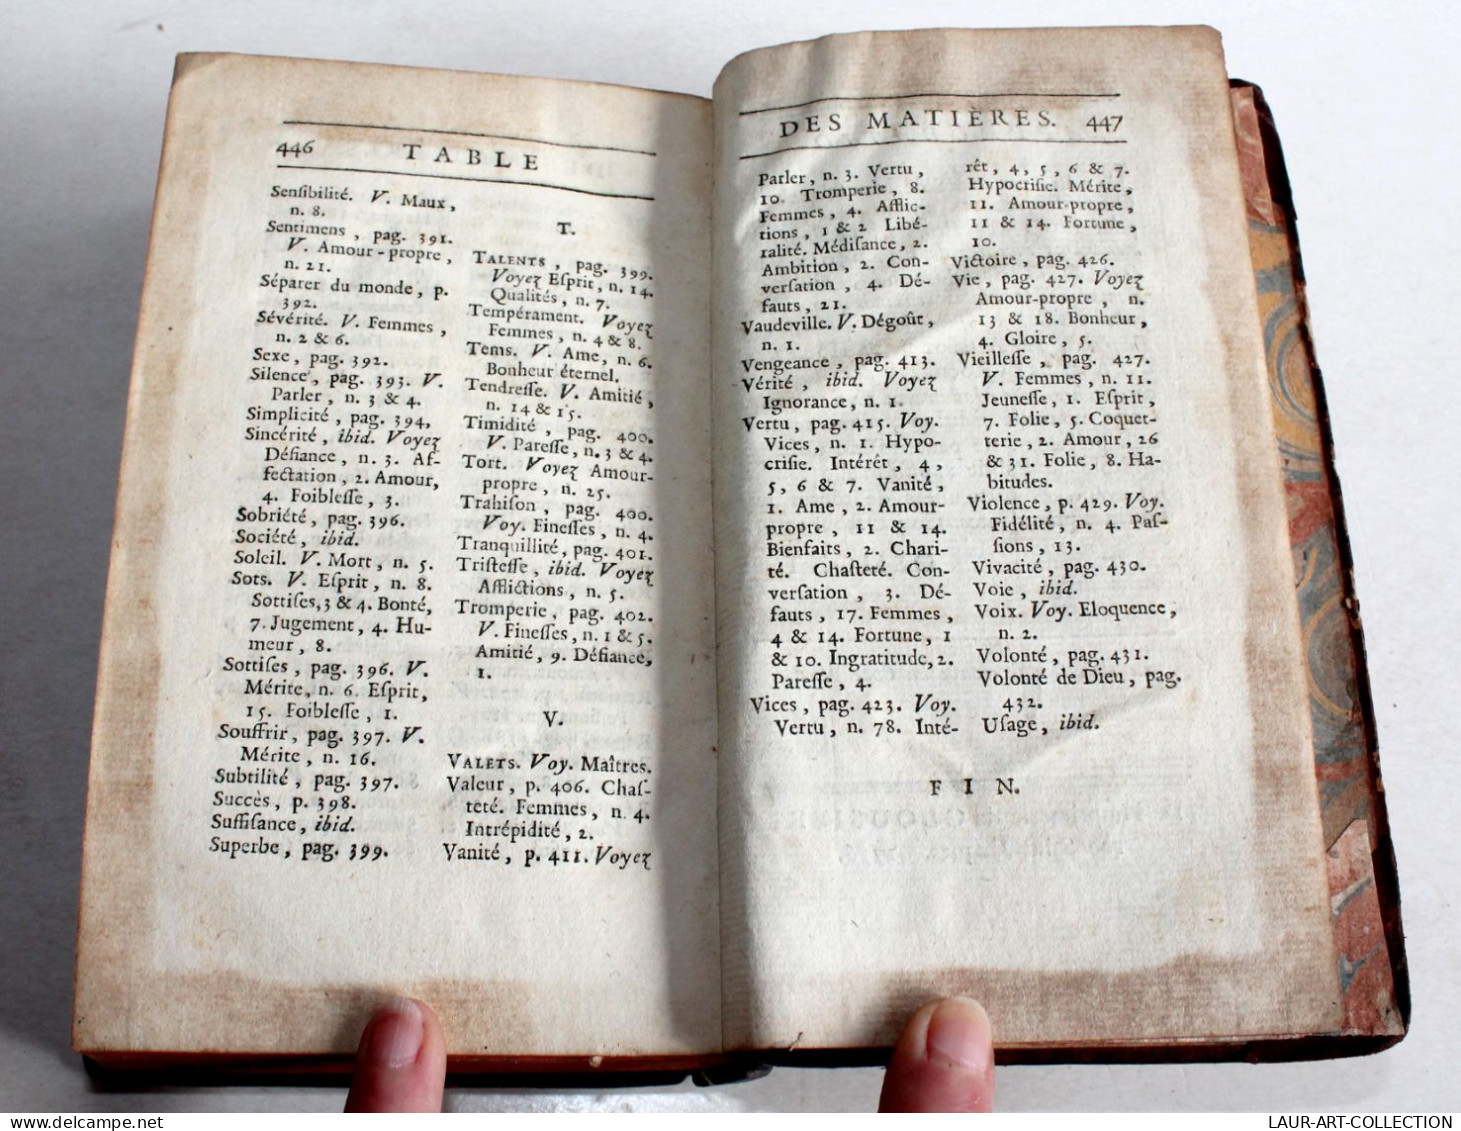 446 TABLE
Senſibilité. V. Maux,
n. 8.
Sentimens, pag. 391.
V. Amour-propre,
n. 21.
Séparer du monde, p.
392.
Sévérité. V. Femmes,
n. 2 & 6.
Sexe, pag. 392.
Silence, pag. 393. V.
Parler, n. 3 & 4.
Simplicité, pag. 394,
Sincérité, ibid. Voyez
Défiance, n. 3. Af-
fectation, 2. Amour,
4. Foibleſſe, 3.
Sobriété, pag. 396.
Société, ibid.
Soleil. V. Mort, n. 5.
Sots. V. Eſprit, n. 8.
Sottiſes, 3 & 4. Bonté,
7. Jugement, 4. Hu-
meur, 8.
Sottiſes, pag. 396. V.
Mérite, n. 6. Eſprit,
15. Foibleſſe, 1.
Souffrir, pag. 397. V.
Mérite, n. 16.
Subtilité, pag. 397.
Succès, p. 398.
Suffiſance, ibid.
Superbe, pag. 399.
T.
TALENTS, pag. 399.
Voyez Eſprit, n. 14.
Qualités, n. 7.
Tempérament. Voyez
Femmes, n. 4 & 8.
Tems. V. Ame, n. 6.
Bonheur éternel.
Tendreſſe. V. Amitié,
n. 14 & 15.
Timidité, pag. 400.
V. Pareſſe, n. 3 & 4.
Tort. Voyez Amour-
propre, n. 25.
Trahiſon, pag. 400.
Voy. Fineſſes, n. 4.
Tranquillité, pag. 401.
Triſteſſe, ibid. Voyez
Afflictions, n. 5.
Tromperie, pag. 402.
V. Fineſſes, n. 1 & 5.
Amitié, 9. Défiance,
1.
V.
VALETS. Voy. Maîtres.
Valeur, p. 406. Chaſ-
teté. Femmes, n. 4.
Intrépidité, 2.
Vanité, p. 411. Voyez
DES MATIÈRES. 447
Parler, n. 3. Vertu,
10. Tromperie, 8.
Femmes, 4. Afflic-
tions, 1 & 2 Libé-
ralité. Médiſance, 2.
Ambition, 2. Con-
verſation, 4. Dé-
fauts, 21.
Vaudeville. V. Dégoût,
n. 1.
Vengeance, pag. 413.
Vérité, ibid. Voyez
Ignorance, n. 1.
Vertu, pag. 415. Voy.
Vices, n. 1. Hypo-
criſie. Intérêt, 4,
5, 6 & 7. Vanité,
1. Ame, 2. Amour-
propre, 11 & 14.
Bienfaits, 2. Chari-
té. Chaſteté. Con-
verſation, 3. Dé-
fauts, 17. Femmes,
4 & 14. Fortune, 1
& 10. Ingratitude, 2.
Pareſſe, 4.
Vices, pag. 423. Voy.
Vertu, n. 78. Inté-
rêt, 4, 5, 6 & 7.
Hypocriſie. Mérite,
11. Amour-propre,
11 & 14. Fortune,
10.
Victoire, pag. 426.
Vie, pag. 427. Voyez
Amour-propre, n.
13 & 18. Bonheur,
4. Gloire, 5.
Vieilleſſe, pag. 427.
V. Femmes, n. 11.
Jeuneſſe, 1. Eſprit,
7. Folie, 5. Coquet-
terie, 2. Amour, 26
& 31. Folie, 8. Ha-
bitudes.
Violence, p. 429. Voy.
Fidélité, n. 4. Paſ-
ſions, 13.
Vivacité, pag. 430.
Voie, ibid.
Voix. Voy. Eloquence,
n. 2.
Volonté, pag. 431.
Volonté de Dieu, pag.
432.
Uſage, ibid.
FIN.
LAUR-ART-COLLECTION